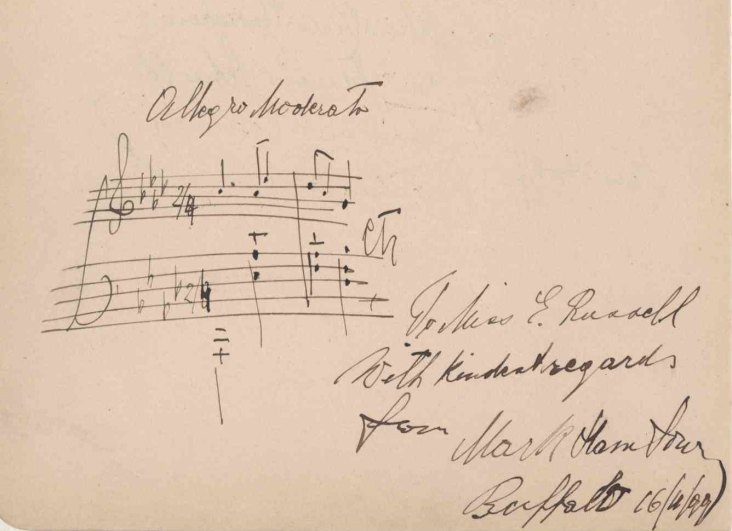 Allegro Moderato
2/4
etc
2/4
To Miss E. Russell
With kindest regards
from Mark Hambourg
Buffalo